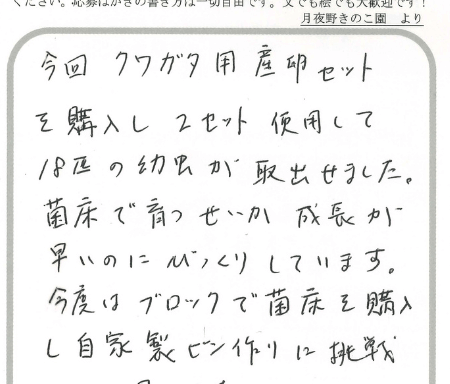 ください。応募はがきの書き方は一切自由です。文でも絵でも大歓迎です!
月夜野きのこ園 より
今回 クワガタ用 産卵セット
を購入し 2セット 使用して
18匹の幼虫が 取出せました。
菌床で育つせいか 成長が
早いのにびっくりしています。
今度はブロックで菌床を購入
し自家製ビン作りに挑戦